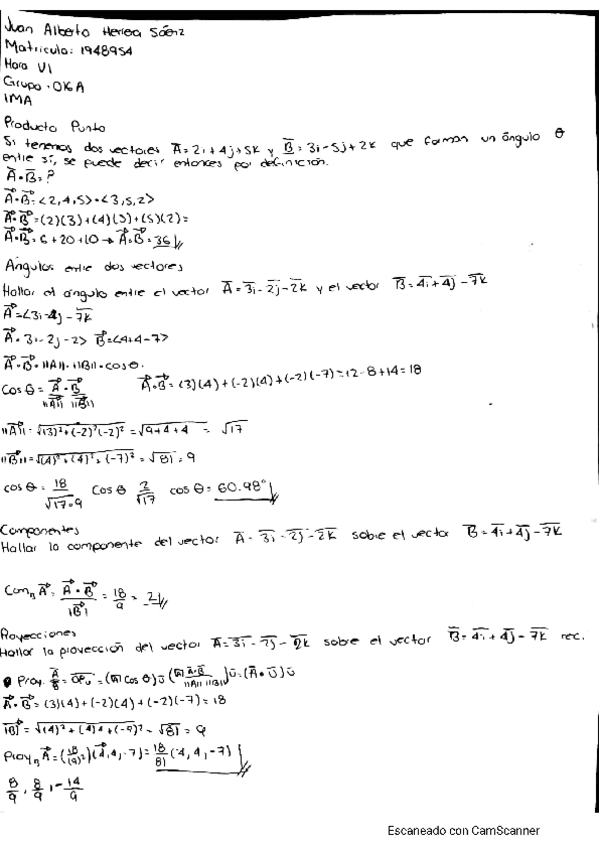 Juan Alberto Herrea Sáenz
Matricula: 1948954
Hora V1
Grupo: OK6A
IMA
Producto Punto
Si tenemos dos vectores A̅=2i+4j+5k y B̅=3i-5j+2k que forman un ángulo θ
entre sí, se puede decir entonces por definición.
A⃗•B⃗=?
A⃗•B⃗=<2,4,5>•<3,5,2>
A⃗•B⃗=(2)(3)+(4)(5)+(5)(2)=
A⃗•B⃗=6+20+10→A⃗•B⃗=36
Angulos entre dos vectores
Hallar el angulo entre el vector A̅=3i-2j-2k y el vector B̅=4i+4j-7k
A⃗=<3i-4j-7k
A⃗•3i-2j-2> B⃗=<4+4-7>
A⃗•B⃗=||A||•||B||•cosθ.
Cos θ = A⃗•B⃗ / ||A⃗|| ||B⃗|| A⃗•B⃗=(3)(4)+(-2)(4)+(-2)(-7)=12-8+14=18
||A⃗||=√(3)²+(-2)²(-2)²=√9+4+4 = √17
||B⃗||=√(4)²+(4)²+(-7)²=√81=9
cosθ=18/√17•9 Cosθ 2/√17 cosθ=60.98°
Componentes
Hallar la componente del vector A̅-3i-2j-2k sobre el vector B̅=4i+4j-7k
A⃗=A⃗•B⃗/|B⃗|=18/9=2
Proyecciones
Hallar la proyección del vector A̅=3i-2j-2k sobre el vector B̅=4i+4j-7k rec.
A⃗•B⃗=(3)(4)+(-2)(4)+(-2)(-7)=18
Proy A⃗=(18/(9)²)(4,4,-7)=18/81(4,4,-7)
8/9, 8/9, -14/9
Escaneado con CamScanner